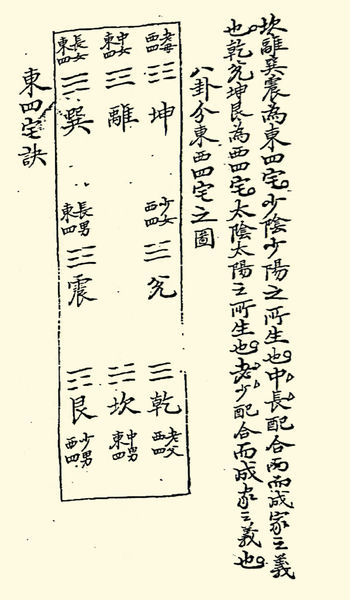 坎離巽震為東四宅少陰少陽之所生也中長配合而而成家之義
也乾兌坤艮為西四宅太陰太陽之所生也老少配合而成家之義也
八卦分東西四宅之圖
老母西四
坤
中女東四
離
長女東四
巽
少女西四
兌
長男東四
震
乾
老父西四
坎
中男東四
艮
少男西四
東四宅訣